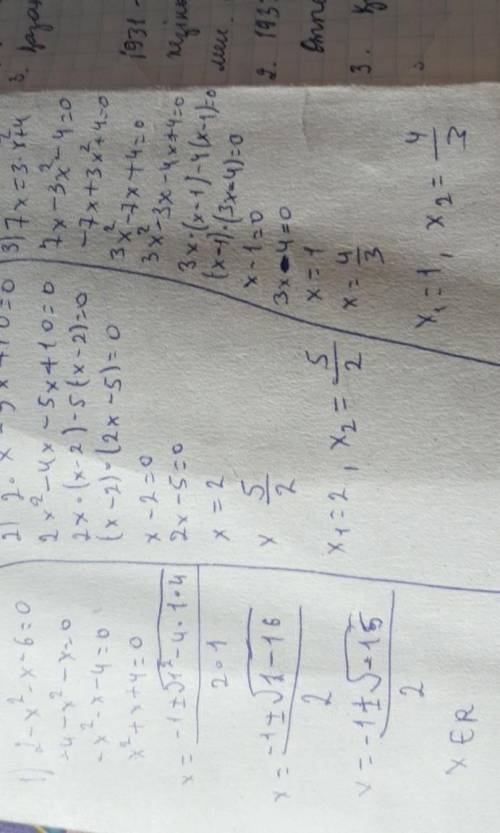 1) 2-x²-x-6=0
-4-x²-x=0
-x²-x-4=0
x²+x+4=0
x = -1±√1²-4·1·4 / 2·1
x = -1±√1-16 / 2
x = -1±√-15 / 2
x ∈ R
2x²-4x-5x+10=0
2x·(x-2)-5(x-2)=0
(x-2)·(2x-5)=0
x-2=0
2x-5=0
x=2
x 5/2
x₁=2, x₂=5/2
3) 7x=3·x²+4
7x-3x²-4=0
-7x+3x²+4=0
3x²-7x+4=0
3x²-3x-4x+4=0
3x·(x-1)-4(x-1)=0
(x-1)·(3x-4)=0
x-1=0
3x-4=0
x=1
x=4/3
x₁=1, x₂=4/3
1931-
2. 193
3.